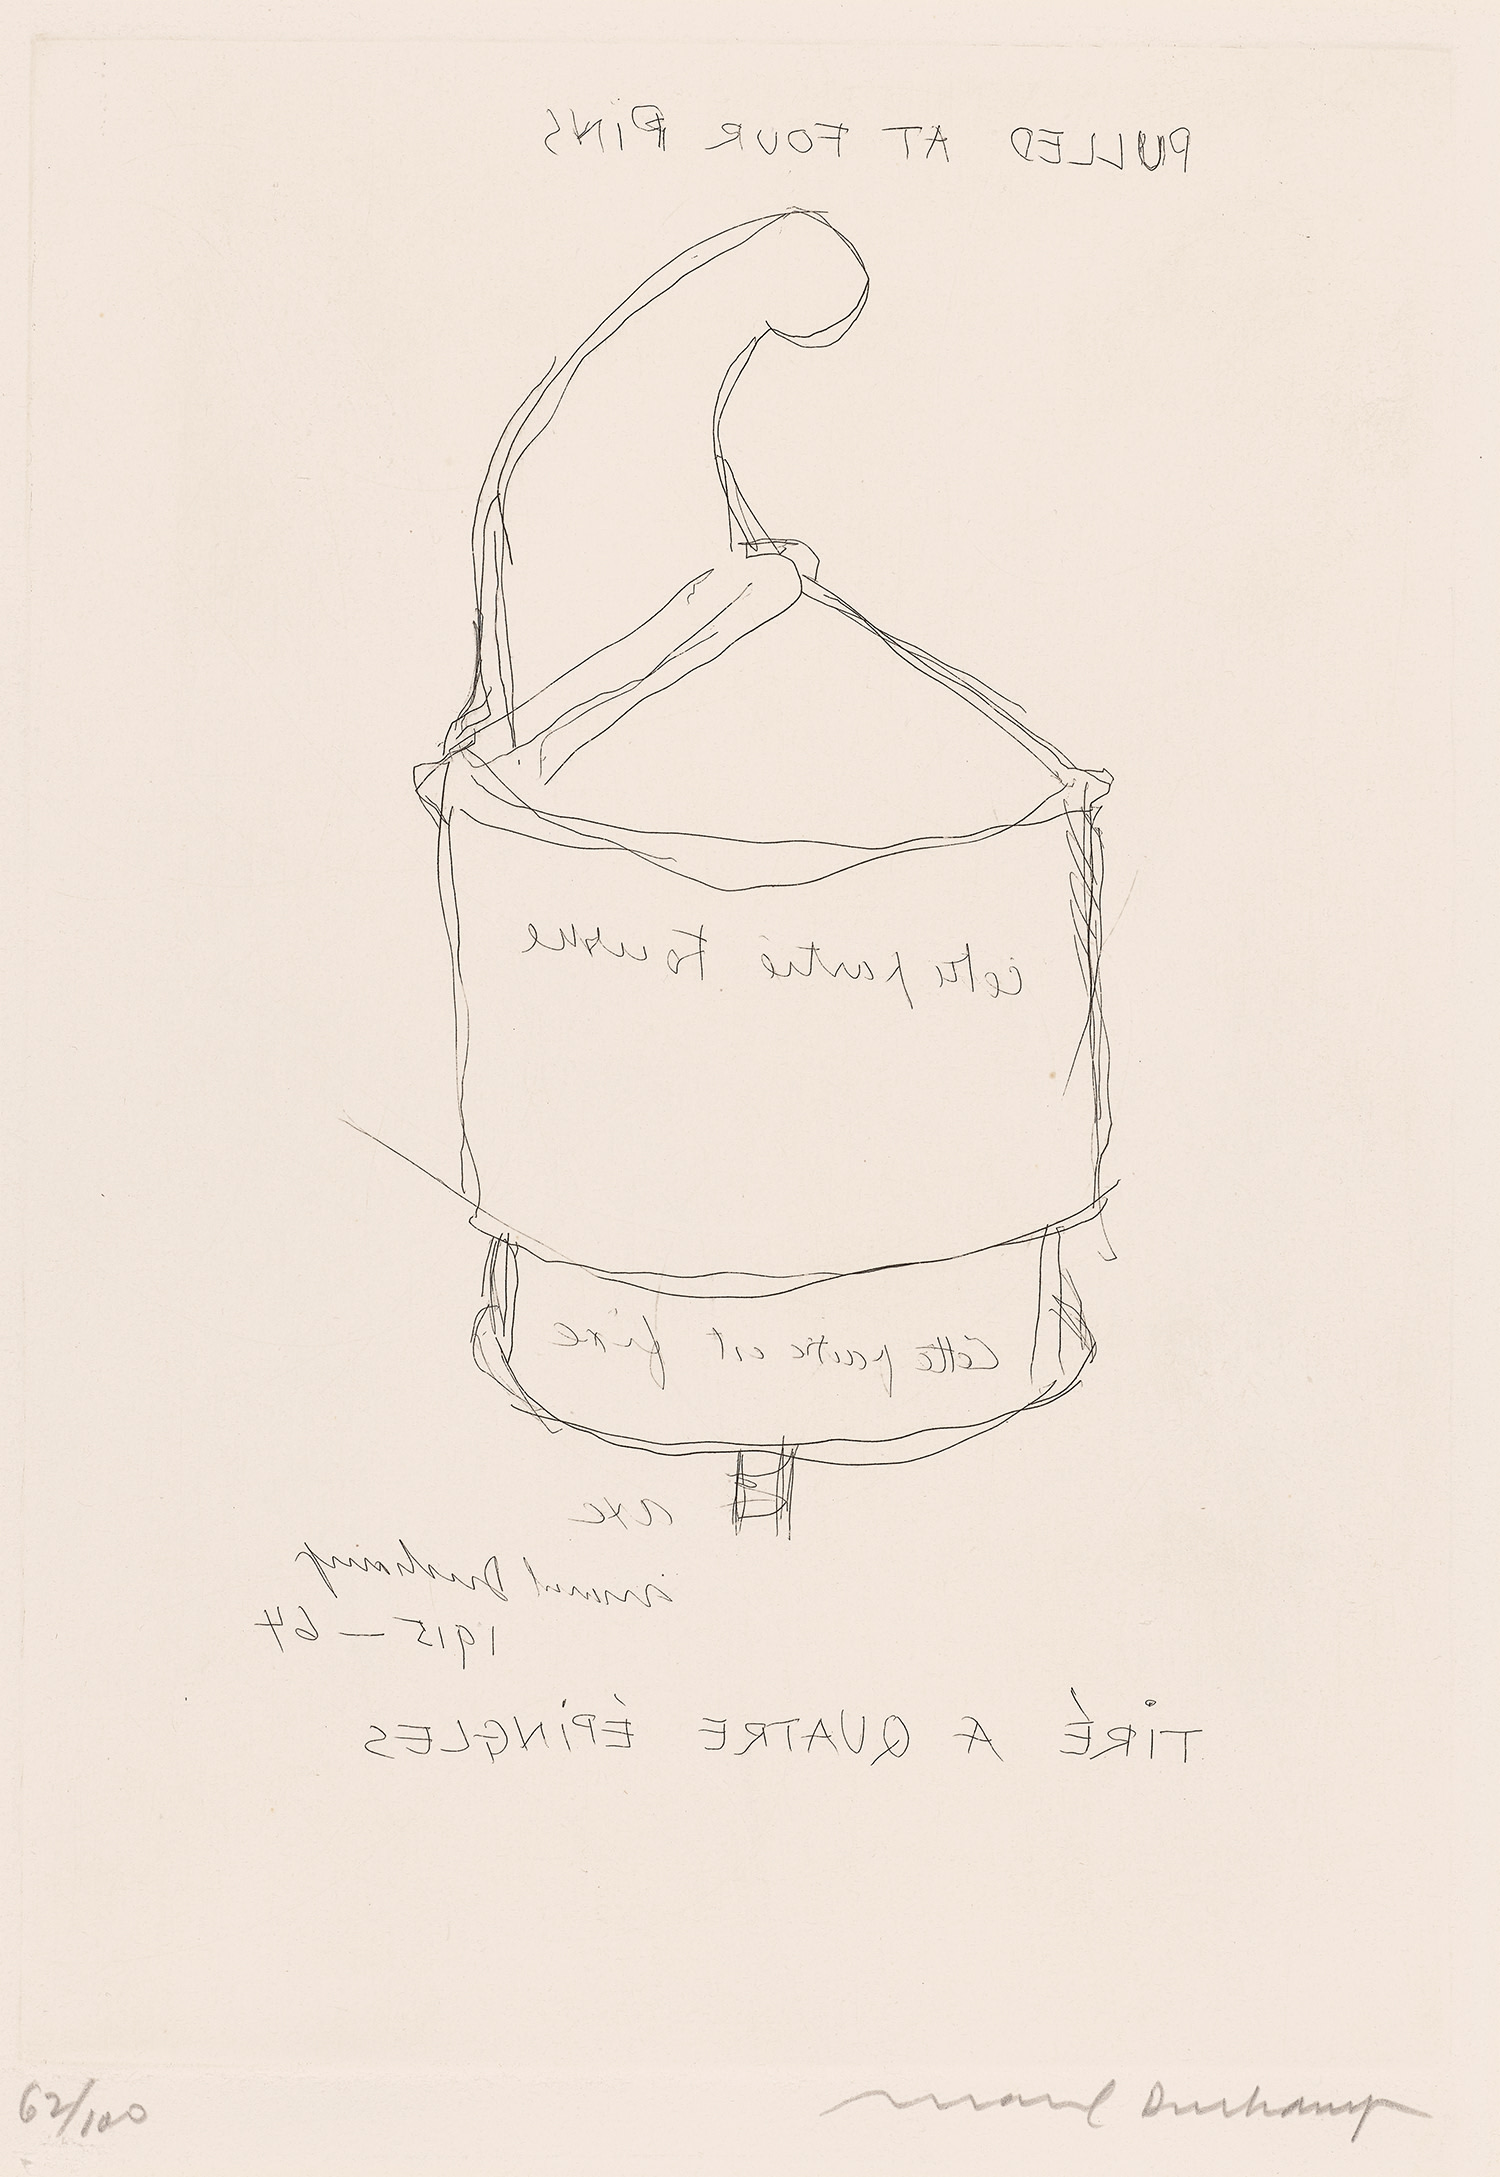 PULLED AT FOUR PINS
Cette partie tourne
Cette partie est fixe
axe
Marcel Duchamp
1915 — 64
TIRÉ A QUATRE ÉPINGLES
62/100
Marcel Duchamp